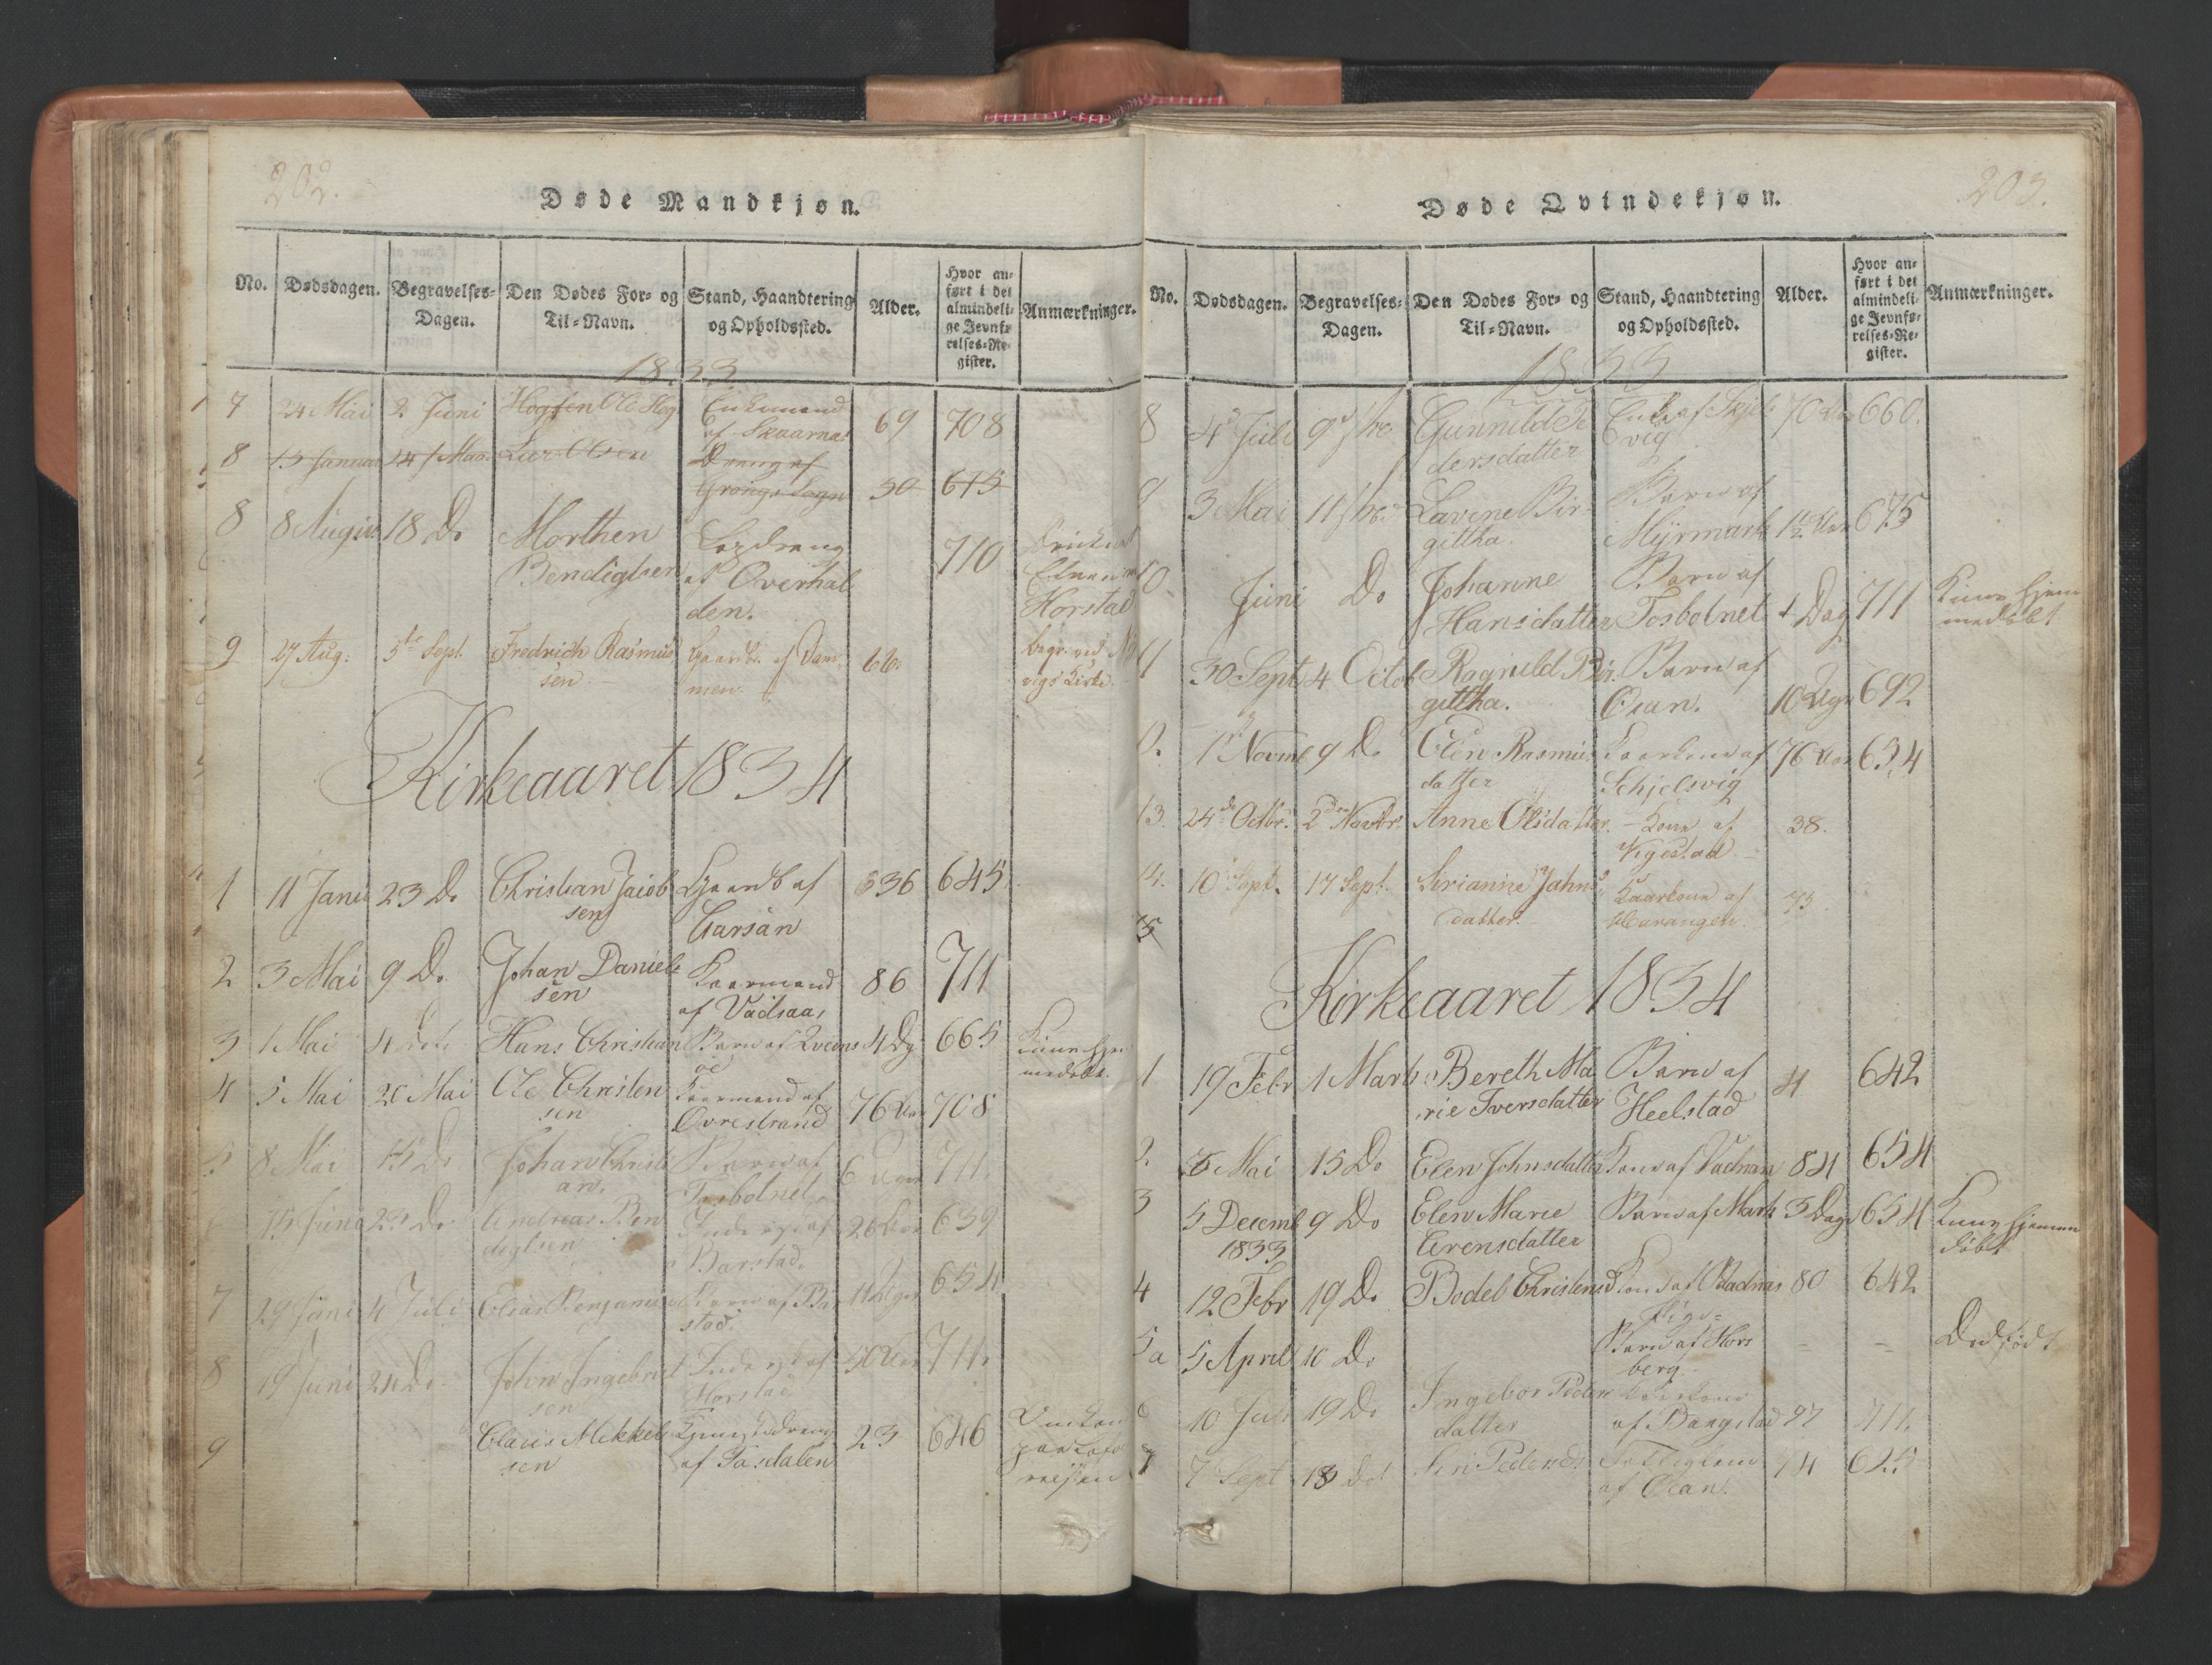 202.
Døde Mandkjøn.
No. Dødsdagen. Begravelses-Dagen. Den Dødes For- og Til-Navn. Stand, Haandtering og Opholdssted. Alder. Hvor anført i det almindelige Jevnførelses-Register. Anmærkninger.
1833
7 24 Mai 2 Juni Ole Enkemand
af Skaarnas 69 708
8 Olsen Dreng af
Grongs Sogn 50 615
8 8 August 18 Do Morthen
Bendigtsen af Overhal
den. 710
Horstad
9 27 Aug: 5te Sept. Fredrich Rasmus
sen Gaardb. af
men. 66. begr. ved
vigs Kirke.
Kirkeaaret 1834
1 11 Janu 23 Do Christian Jacob
sen Gaardb af
Garsan 36 645
2 3 Mai 9 Do Johan Daniel
sen Kaarmand
af Vadsaas 86 711
3 1 Mai 4 Hans Christian Barn af 4 Dg 665
4 5 Mai 20 Mai Ole Christen
sen Kaarmand af
Ovrestrand 76 Aar 708
5 8 Mai 15 Do Johan Christi
an. Barn af
Tosbotnet 6 Uger 711.
15 Juni 23 Do Andreas Ben
digtsen af
Barstad. 26 Aar 639
7 29 Juni 4 Juli Elias Benjamin Barn af Bar
stad. 11 Uger 654
8 19 Juni 24 Do John Ingebrigt
sen af
Horstad 50 Aar 711.
9 Claus Mikkel
sen
af Tosdalen 23 646
203.
Døde Qvindekjøn.
No. Dødsdagen. Begravelses-Dagen. Den Dødes For- og Til-Navn. Stand, Haandtering og Opholdssted. Alder. Hvor anført i det almindelige Jevnførelses-Register. Anmærkninger.
1833
8 4 Juli 9 Gunnild Pe
dersdatter Enke af Skjels
vig 70 Aar 660.
9 3 Mai 11 Lavine Bir
gittha. Barn af
Myrmark 675
10. Juni Do Johanne
Hansdatter Barn af
Tosbotnet 1 Dag 711 Kuns hjem
medøbt
11 30 Sept 4 Octob Ragnild Bir
gittha. Barn af
Oean. 10 Uger 692
12. 1 Novme 9 Do Elen Rasmus
datter Kaarkone af
Schjelsvig 76 Aar 654
13. 24de Octbr. 2den Novbr. Anne Olsdatter. Kone af
Vigestad 38.
14. 10 Sept. 17 Sept. Sirianne Jahns
datter. Kaarkone af
Harangen. 73.
Kirkeaaret 1834
1 19 Febr 1 Marts Bereth Ma
rie Iversdatter Barn af
Heelstad 4 642
2. 6 Mai 15 Do Elen Johnsdatter Kone af Vadnan 84 654
3 5 Decemb 9 Do
1833 Elen Marie
Arensdatter Barn af Mark 3 Dage 654 Kuns hjemme
døbt
4 12 Febr 19 Do Bodel Christensd Kone af Vadnas 80 642
5a 5 April 10 Do Pige-
Barn af Hors
berg. - - Dødfødt
6 10 Juli 19 Do Ingebor Peders
datter Kaarkone
af Bangstad 97 711.
7 7 Sept 18 Do Siri Pedersd
af Oean. 74 625